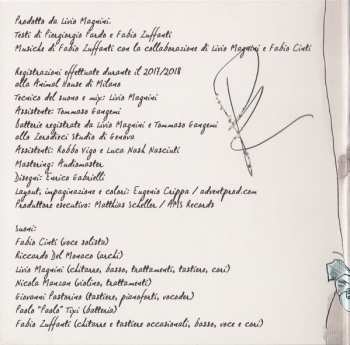 Prodotto da Livio Magnini.
Testi di Piergiorgio Pardo e Fabio Zuffanti
Musiche di Fabio Zuffanti con la collaborazione di Livio Magnini e Fabio Cinti
Registrazioni effettuate durante il 2017/2018
alla Animal House di Milano
Tecnico del suono e mix: Livio Magnini
Assistente: Tommaso Gangemi
batterie registrate da Livio Magnini e Tommaso Gangemi
allo Zerodieci Studio di Genova
Assistenti: Robbo Vigo e Luca Nash Nasciuti
Mastering: Audiomaster
Disegni: Enrica Gabrielli
Layout, impaginazione e colori: Eugenio Crippa / adventprod.com
Produttore esecutivo: Matthias Scheller / AMS Records
Suoni:
Fabio Cinti (voce solista)
Riccardo Del Monaco (archi)
Livio Magnini (chitarre, basso, trattamenti, tastiere, cori)
Nicola Manzan (violino, trattamenti)
Giovanni Pastorino (tastiere, pianoforti, vocoder)
Paolo "Paolo" Tixi (batteria)
Fabio Zuffanti (chitarre e tastiere occasionali, basso, voce e cori)